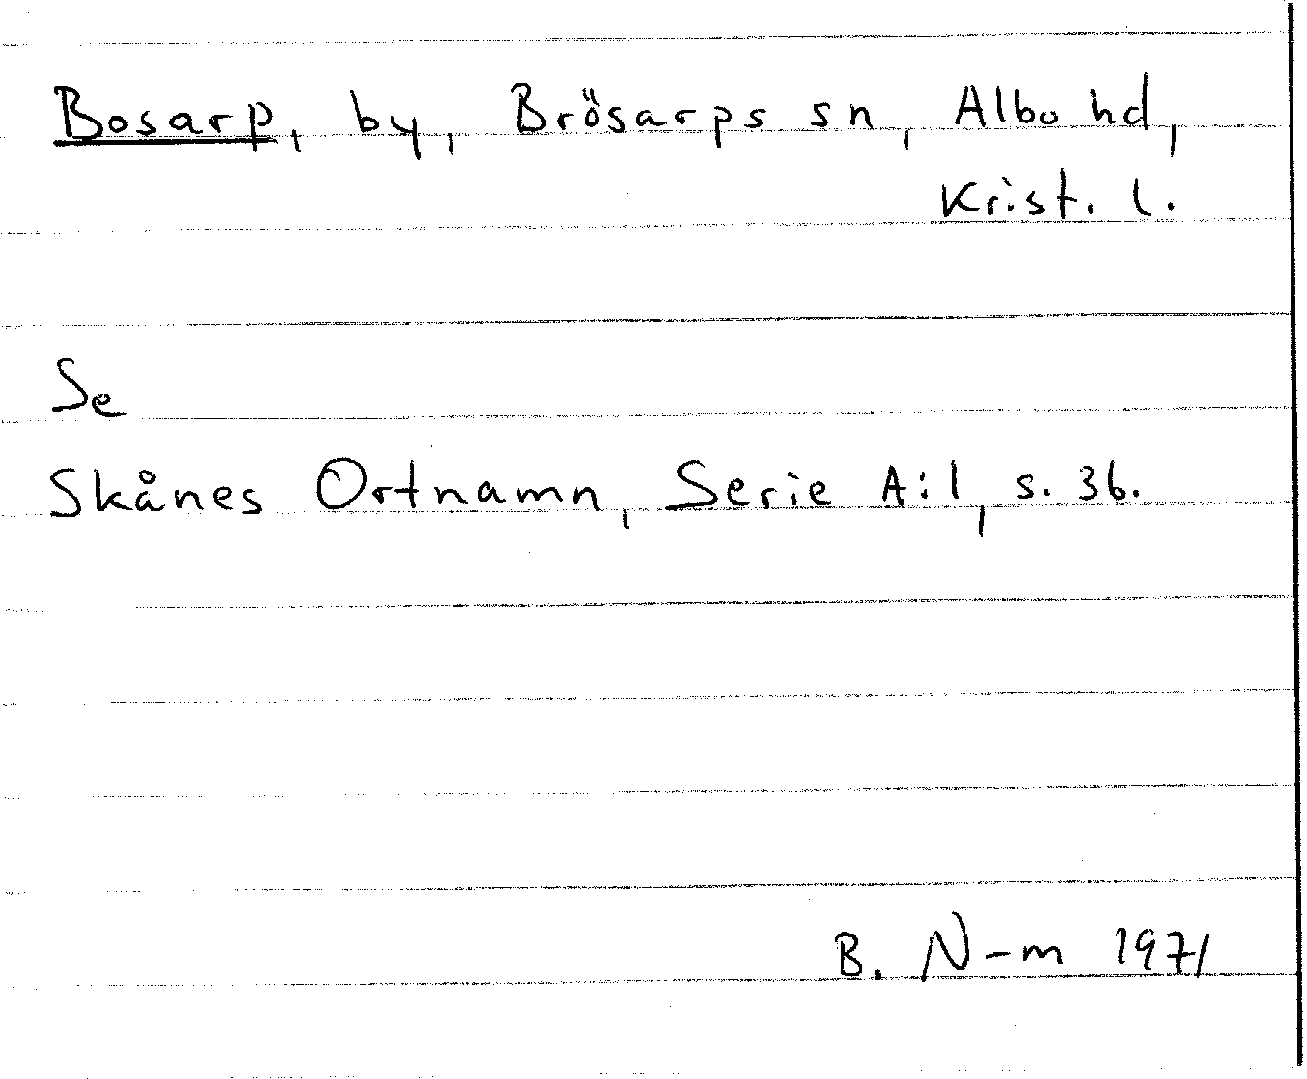 Bosarp, by, Brösarps sn, Albo hd,
Krist. l.
Se
Skånes Ortnamn, Serie A:1, s. 36.
B. N-m 1971